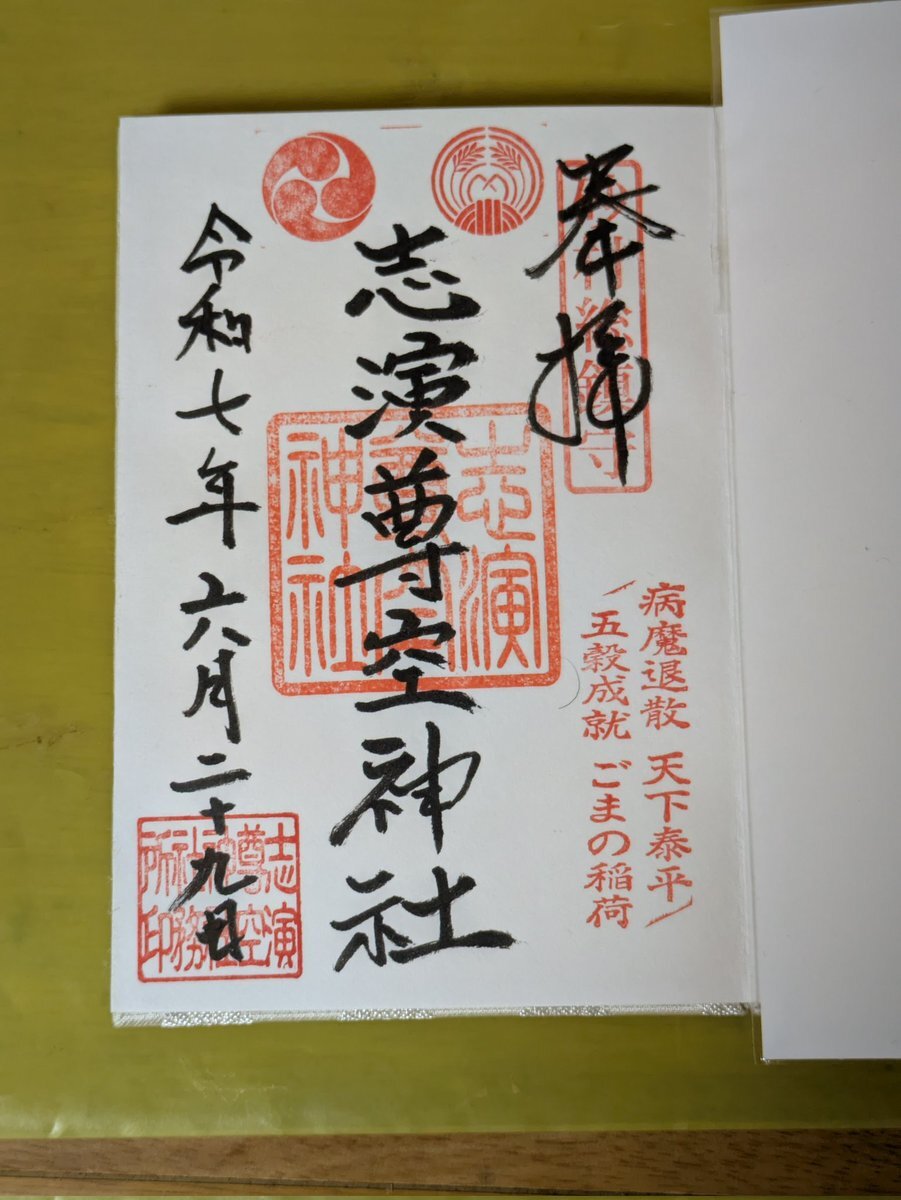 奉拝
総鎮守
病魔退散 天下泰平
五穀成就 ごまの稲荷
志演尊空神社
志演尊空神社
令和七年六月二十九日